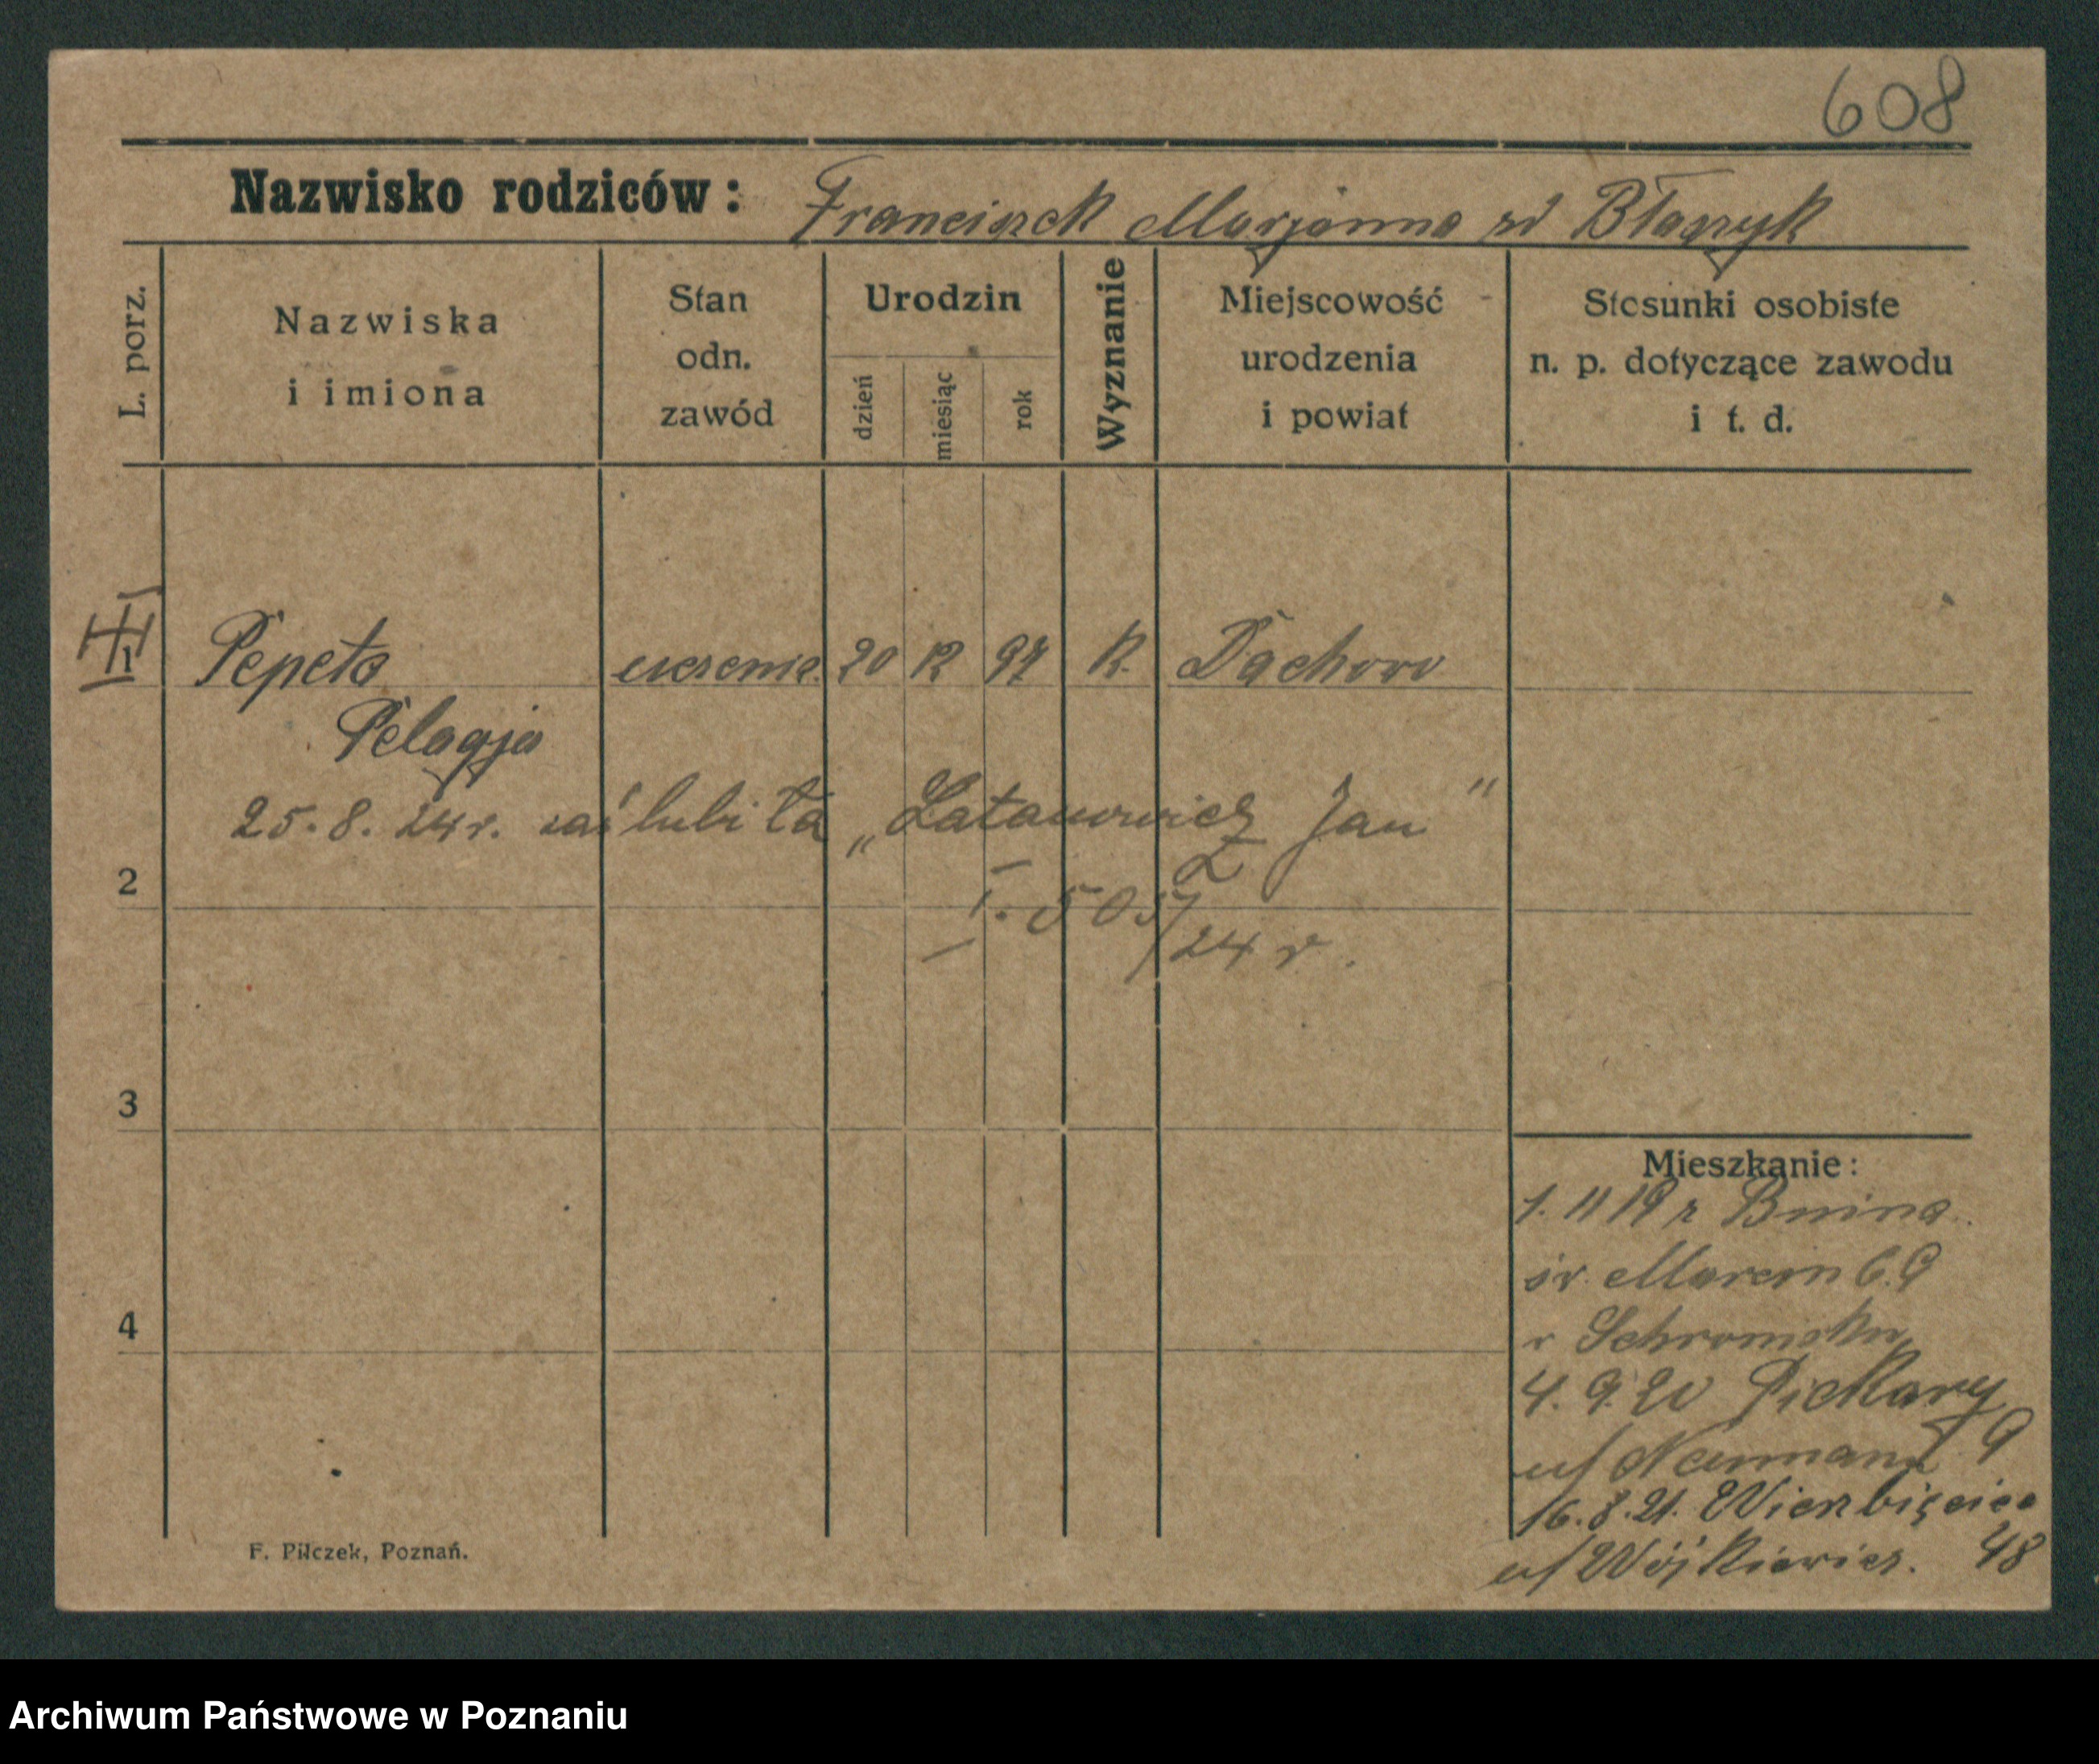 608
Nazwisko rodziców: Franciszek Marjanna zd Błaszyk
L. porz.
Nazwiska i imiona
Stan odn. zawód
Urodzin
dzień
miesiąc
rok
Wyznanie
Miejscowość urodzenia i powiat
Stosunki osobiste n. p. dotyczące zawodu i t. d.
1 Pepeta 20 12 97 K. Dachowo
Pelagja
25.8.24r. zaślubiła „Latanowicz Jan"
2
I. 505/24 r.
3
4
Mieszkanie:
1. 11 19 r Bnina
św. Marcin 69
4. 9. 20 Piekary 9
u/ Neumann
16.8.21. Wierzbięcice 48
u/ Wójkiewicz.
F. Pilczek, Poznań.
Archiwum Państwowe w Poznaniu